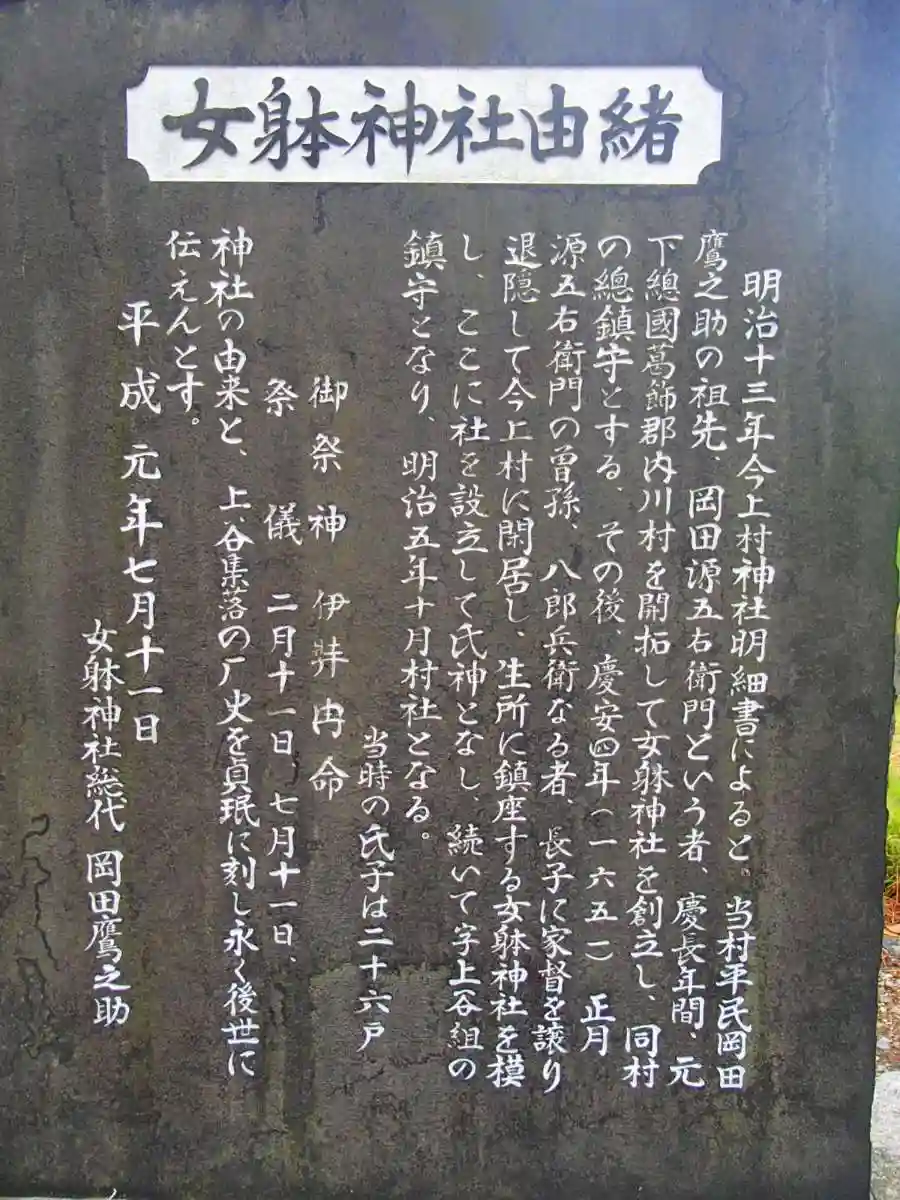 女躰神社由緒
明治十三年今上村神社明細書によると、当村平民岡田
鷹之助の祖先、岡田源五右衛門という者、慶長年間、元
下總國葛飾郡内川村を開拓して女躰神社を創立し、同村
の總鎮守とする、その後、慶安四年(一六五一)正月
源五右衛門の曽孫、八郎兵衛なる者、長子に家督を譲り
退隠して今上村に閑居し、生所に鎮座する女躰神社を模
し、ここに社を設立して氏神となし、続いて字上谷組の
鎮守となり、明治五年十月村社となる。
当時の氏子は二十六戸
御祭神 伊弉冉命
祭儀 二月十一日、七月十一日、
神社の由来と、上谷集落の厂史を貞珉に刻し永く後世に
伝えんとす。
平成元年七月十一日
女躰神社総代 岡田鷹之助